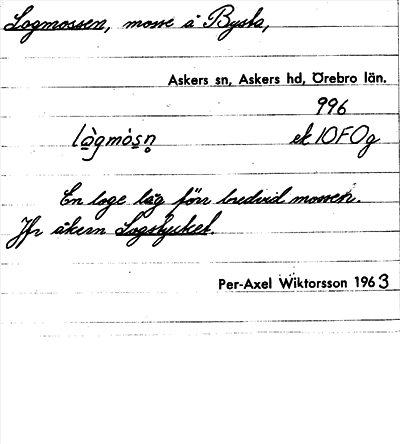 Logmossen, mosse å Bysta,
Askers sn, Askers hd, Örebro län.
996
lògmòsn̥ ek 10F0g
En loge låg förr bredvid mossen.
Jfr åkern Logstycket.
Per-Axel Wiktorsson 1963